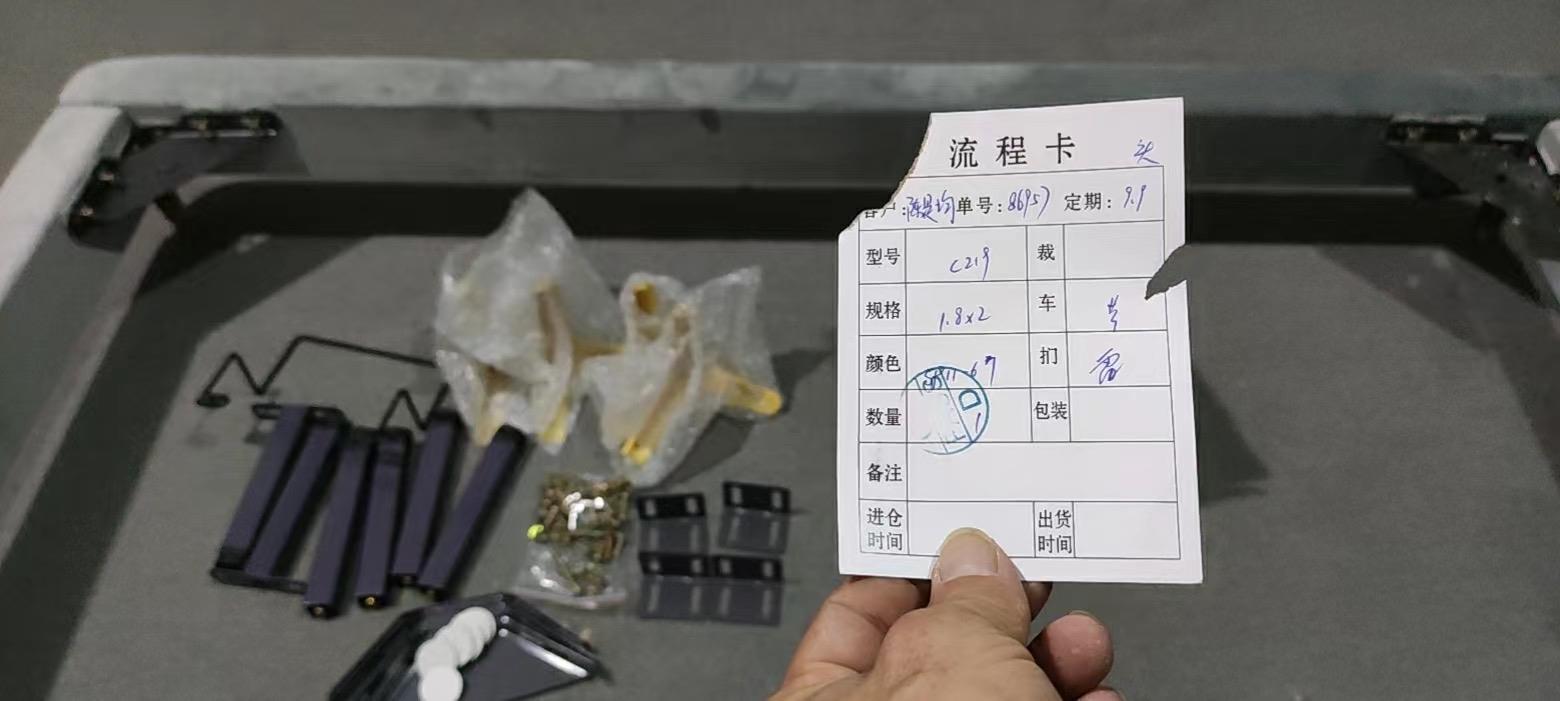 流程卡 头
客户: 单号:86957 定期:9.9
型号 C219 裁
规格 1.8x2 车
颜色 扪
数量 包装
备注
进仓时间 出货时间